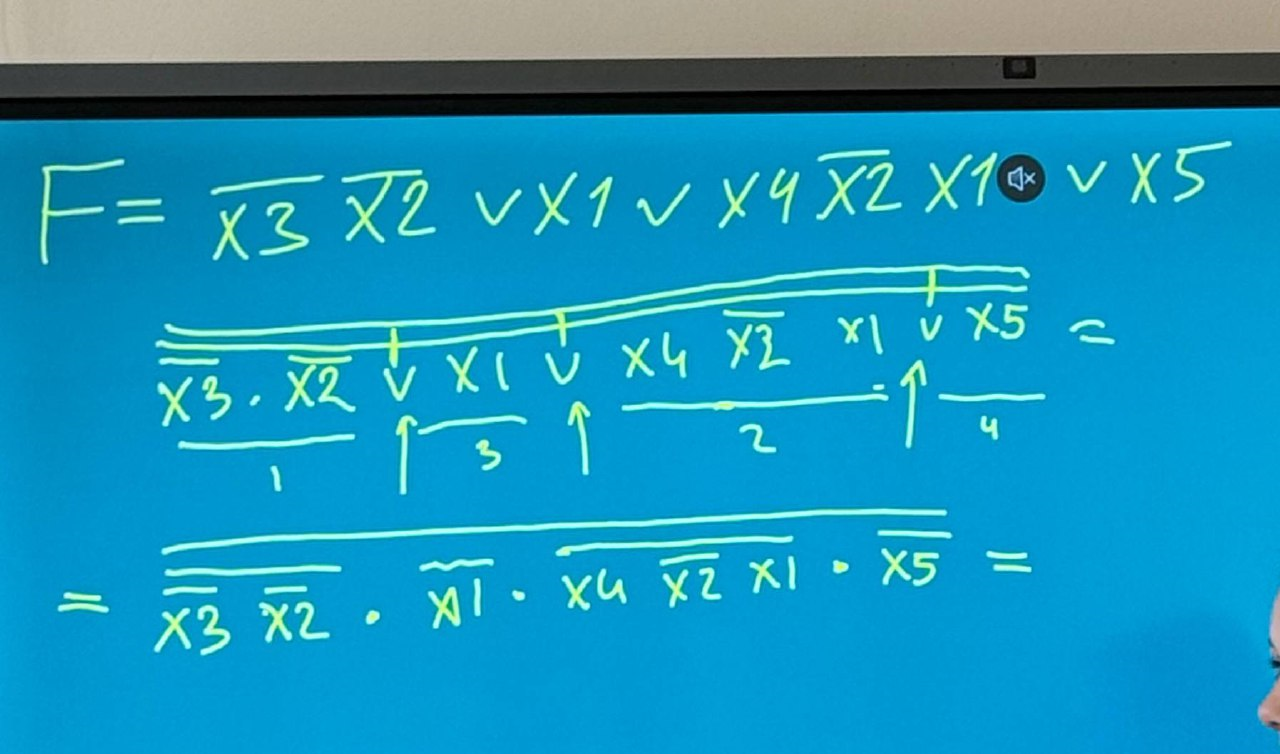 F = x̅3̅ x̅2̅ ∨ x1 ∨ x4 x̅2̅ x1 ∨ x5
x̅3̅ · x̅2̅ ∨ x1 ∨ x4 x̅2̅ x1 ∨ x5 =
1 3 2 4
= x̅3̅ x̅2̅ · x̅1̅ · x4 x̅2̅ x1 · x̅5̅ =